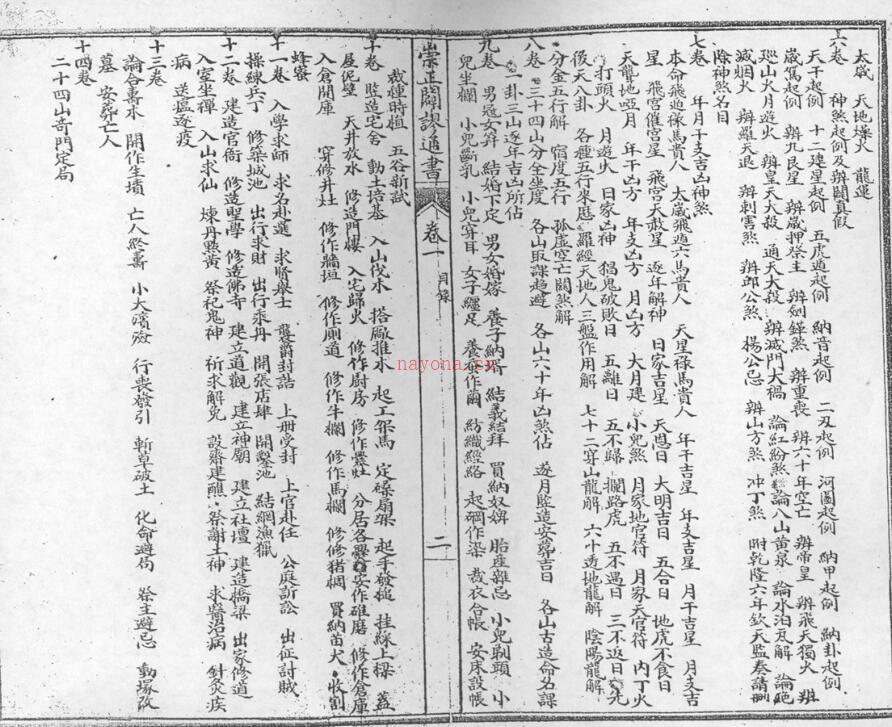 太歲　天地燥火　龍運
六卷　神煞起例及辨闢真假
天干起例　十二建星起例　五虎遁起例　納音起例　二刃起例　河圖起例　納甲起例　納卦起例
歲駕起例　辨九良星　辨歲押祭主　辨劍鋒煞　辨重喪　辨六十年空亡　辨帝星　辨飛天獨火　辨
廵山火月遊火　辨皇天大殺　通天大殺　辨滅門大禍　論紅紛煞　論八山黃泉　論水泊瓦解　論絕
滅烟火　辨羅天退　辨刺害煞　辨郎公煞　楊公忌　辨山方煞　冲丁煞　附乾隆六年欽天監奏請刪
除神煞名目
七卷　年月干支吉凶神煞
本命飛遊祿馬貴人　太歲飛遊六馬貴人　天星祿馬貴人　年干吉星　年支吉星　月干吉星　月支吉
星　飛宮催官星　飛宮天赦星　逐年解神　日家吉星　天恩日　大明吉日　五合日　地虎不食日
天聾地啞月　年干凶方　年支凶方　月凶方　大月建　小兒煞　月家地官符　月家天官符　內丁火
打頭火　月遊火　日家凶神　猖鬼破敗日　五離日　五不歸　攔路虎　五不遇日　三不返日　先
後天八卦　各種五行來歷　羅經天地人三盤作用解　七十二穿山龍解　六十透地龍解　陰陽龍解
分金五行解　宿度五行　孤虛空亡關煞解
八卷　二十四山分全坐度　各山取課趨避　各山六十年凶煞佔　逐月監造安葬吉日　各山古造命名課
一卦三山逐年吉凶所佔
九卷　男冠女笄　結婚下定　男女婚嫁　養子納婿　結義結拜　買納奴婢　胎產雜忌　小兒剃頭　小
兒坐欄　小兒斷乳　小兒穿耳　女子纏足　養蠶作繭　紡織經絡　起𬒗作染　裁衣合帳　安床設帳
崇正闢謬通書
卷一
目錄
二
栽種時植　五谷新試
十卷　監造宅舍　動土培基　入山伐木　搭廠推木　起工架馬　定磉扇架　起手發搥　挂綵上樑　蓋
屋泥壁　天井放水　修造門樓　入宅歸火　修作厨房　修作灶　分居各爨　安作碓磨　修作倉庫
入倉開庫　穿修井灶　修作牆垣　修作厠道　修作牛欄　修作馬欄　修作猪椆　買納苗犬　收割
蜂蜜
十一卷　入學求師　求名赴選　求賢舉士　襲爵封誥　上册受封　上官赴任　公庭訴訟　出征討賊
操練兵丁　修築城池　出行求財　出行乘丹　開張店肆　開鑿池　結網漁獵
十二卷　建造官衙　修造聖學　修造佛寺　建立道觀　建立神廟　建立社壇　建造橋梁　出家修道
入室坐禪　入山求仙　煉丹點黃　祭祀鬼神　祈求解免　設齋建醮　祭謝土神　求醫治病　針灸疾
病　送瘟逐疫
十三卷
論合壽木　開作生墳　亡人終壽　小大殯殮　行喪發引　斬草破土　化命避局　祭主避忌　動塚改
墓　安葬亡人
十四卷
二十四山奇門定局
nayona.cn